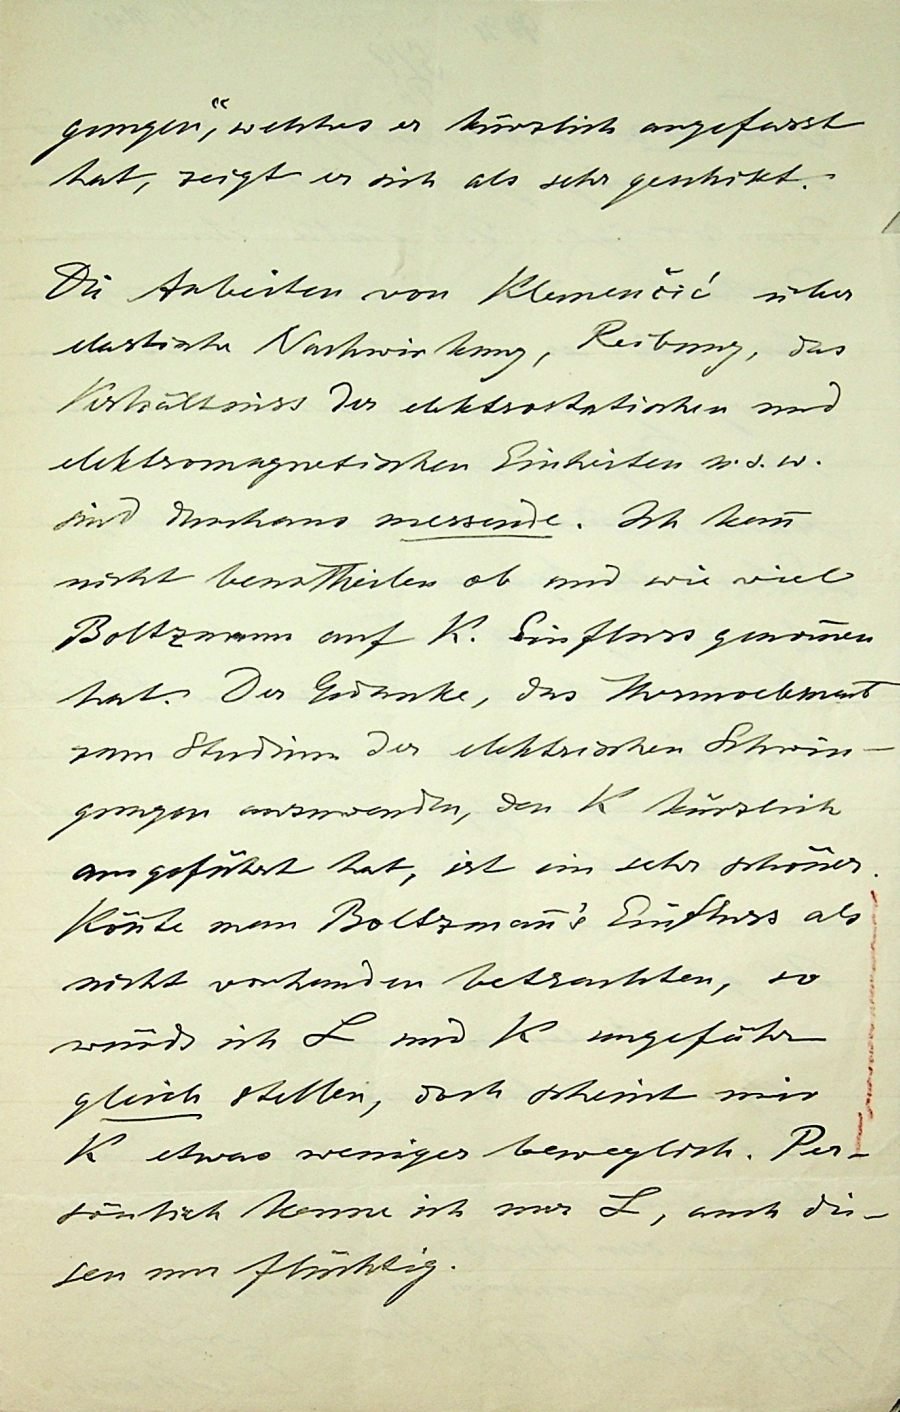 gungen", welches er kürzlich angefasst
hat, zeigt er sich als sehr geschikt.
Die Arbeiten von Klemenčić über
elastische Nachwirkung, Reibung, das
Verhältniss der elektrostatischen und
elektromagnetischen Einheiten u.s.w.
sind durchaus messende. Ich kan̄
nicht beurtheilen ob und wie viel
Boltzmann auf K. Einfluss genom̄en
hat. Der Gedanke, das Thermoelement
zum Studium der elektrischen Schwin-
gungen anzuwenden, den K kürzlich
ausgeführt hat, ist ein sehr schöner.
Kön̄te man Boltzman̄'s Einfluss als
nicht vorhanden betrachten, so
würde ich L und K ungefähr
gleich stellen, doch scheint mir
K etwas weniger beweglich. Per-
sönlich kenne ich nur L, auch die-
sen nur flüchtig.